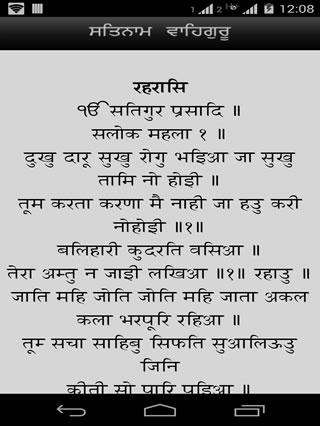 12:08
ਸਤਿਨਾਮ ਵਾਹਿਗੁਰੂ
रहरासि
ੴ सतिगुर प्रसादि ॥
सलोक महला १ ॥
दुखु दारू सुखु रोगु भइिआ जा सुखु
तामि नो होइी ॥
तूम करता करणा मै नाही जा हउु करी
नोहोइी ॥१॥
बलिहारी कुदरति वसिआ ॥
तेरा अम्तु न जाइी लखिआ ॥१॥ रहाउु ॥
जाति महि जोति जोति महि जाता अकल
कला भरपूरि रहिआ ॥
तूम सचा साहिबु सिफति सुआलिऊउु
जिनि
कीती सो पारि पइिआ ॥